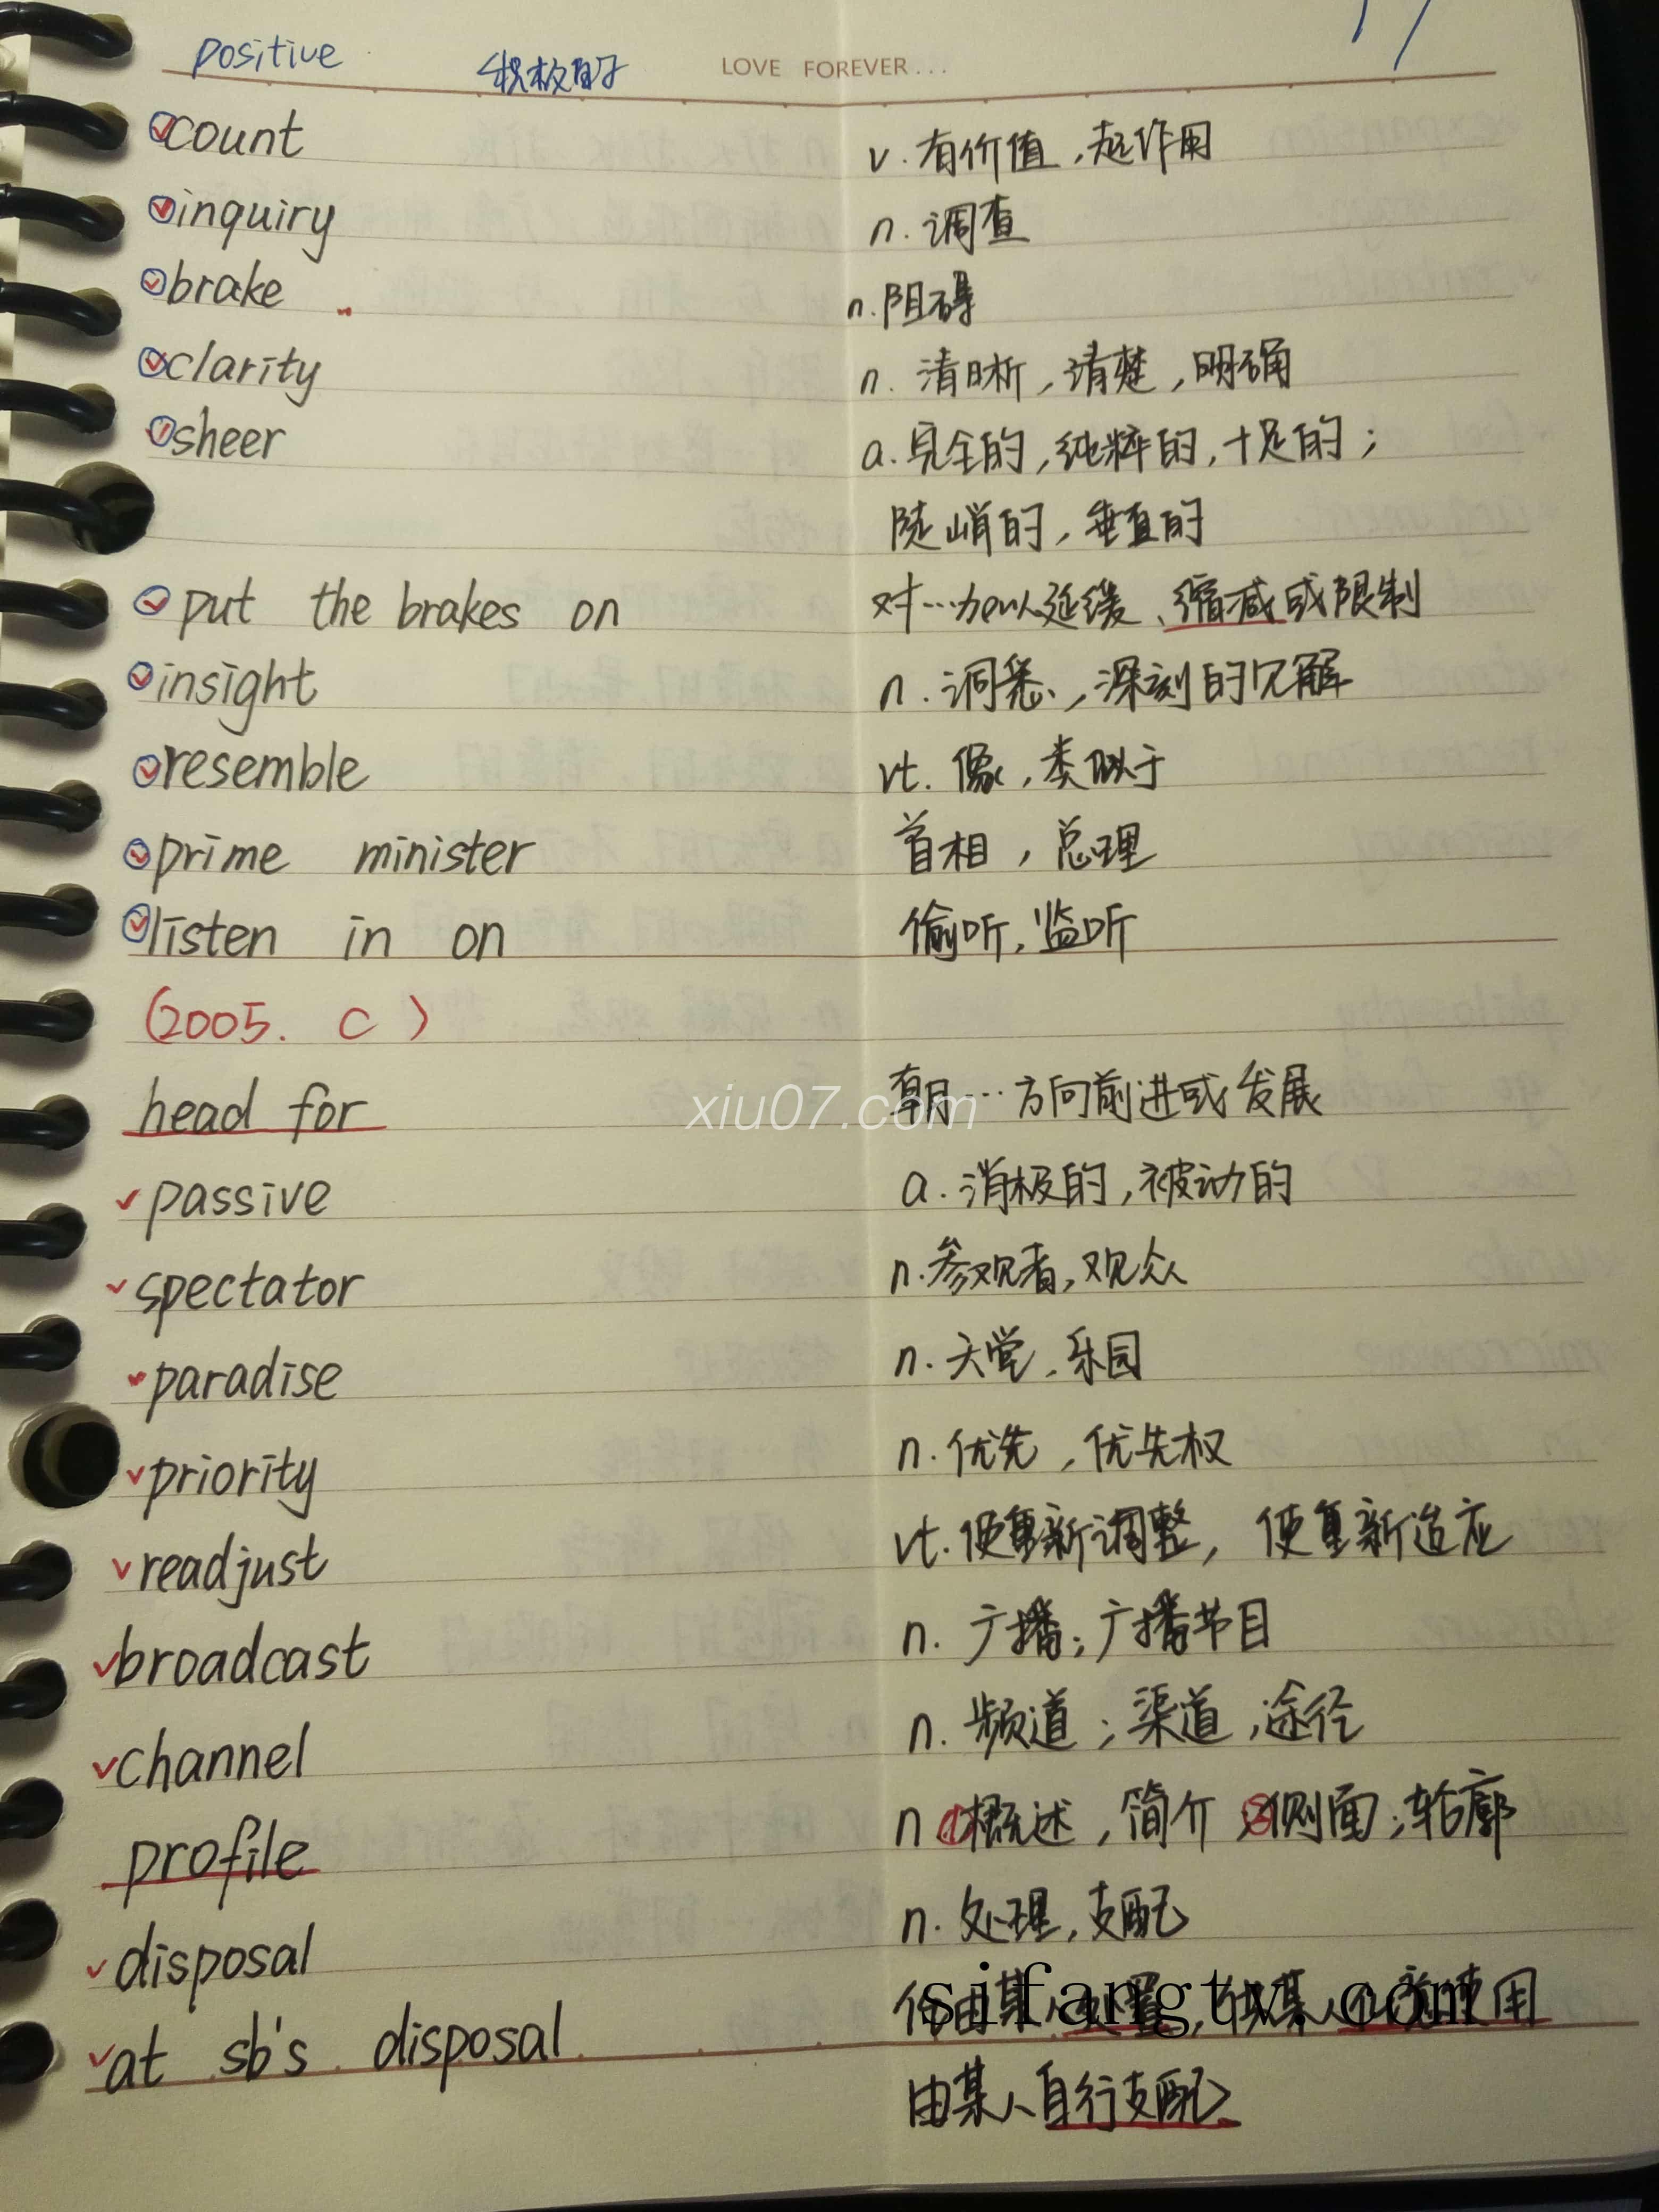 positive 积极的 LOVE FOREVER...
count v. 有价值,起作用
inquiry n. 调查
brake n. 阻碍
clarity n. 清晰,清楚,明确
sheer a. 完全的,纯粹的,十足的;
陡峭的,垂直的
put the brakes on 对…加以延缓、缩减或限制
insight n. 洞悉,深刻的见解
resemble vt. 像,类似于
prime minister 首相,总理
listen in on 偷听,监听
(2005. C)
head for 朝…方向前进或发展
xiu07.com
passive a. 消极的,被动的
spectator n. 参观者,观众
paradise n. 天堂,乐园
priority n. 优先,优先权
readjust vt. 使重新调整, 使重新适应
broadcast n. 广播;广播节目
channel n. 频道;渠道,途径
profile n ①概述,简介 ②侧面;轮廓
disposal n. 处理,支配
at sb's disposal 任由某人处置,供某人任意使用
sifangtv.com
由某人自行支配